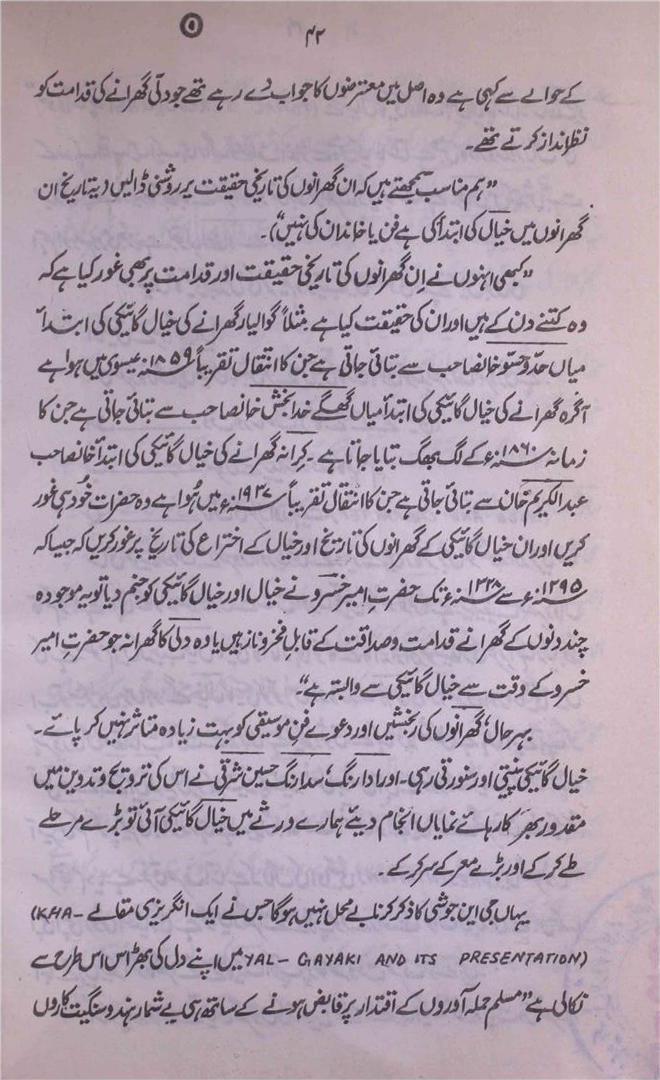 ۴۲
کے حوالے سے کہی ہے وہ اصل میں معترضوں کا جواب دے رہے تھے جو دلّی گھرانے کی قدامت کو
نظر انداز کرتے تھے۔
"ہم مناسب سمجھتے ہیں کہ ان گھرانوں کی تاریخی حقیقت پر روشنی ڈالیں (یہ تاریخ ان
گھرانوں میں خیال کی ابتدأ کی ہے فن یا خاندان کی نہیں")۔
"کبھی انہوں نے اِن گھرانوں کی تاریخی حقیقت اور قدامت پر بھی غور کیا ہے کہ
وہ کتنے دن کے ہیں اور ان کی حقیقت کیا ہے مثلاً گوالیار گھرانے کی خیال گائیکی کی ابتدأ
میاں حدّو حسّو خانصاحب سے بتائی جاتی ہے جن کا انتقال تقریباً ۱۸۵۹ء عیسوی میں ہوا ہے
آگرہ گھرانے کی خیال گائیکی کی ابتدأ میاں گھگّے خدا بخش خانصاحب سے بتائی جاتی ہے جن کا
زمانہ ۱۸۶۰ء کے لگ بھگ بتایا جاتا ہے۔ کرانہ گھرانے کی خیال گائیکی کی ابتدأ خانصاحب
عبدالکریم خان سے بتائی جاتی ہے جن کا انتقال تقریباً ۱۹۳۷ء میں ہُوا ہے وہ حضرات خُود ہی غور
کریں اور ان خیال گائیکی کے گھرانوں کی تاریخ اور خیال کے اختراع کی تاریخ پر غور کریں کہ جیسا کہ
۱۲۹۵ء سے ۱۳۲۸ء تک حضرتِ امیر خسرو نے خیال اور خیال گائیکی کو جنم دیا تو یہ موجودہ
چند دنوں کے گھرانے قدامت و صداقت کے قابلِ فخر و ناز ہیں یا وہ دلّی کا گھرانہ جو حضرتِ امیر
خسرو کے وقت سے خیال گائیکی سے وابستہ ہے"۔
بہرحال، گھرانوں کی رنجشیں اور دعوے فنِ موسیقی کو بہت زیادہ متاثر نہیں کر پائے۔
خیال گائیکی پنپتی اور سنورتی رہی۔ اور ادا رنگ، سدا رنگ حسین شرقی نے اس کی ترویج و تدوین میں
مقدور بھر کارہائے نمایاں انجام دیئے ہمارے ورثے میں خیال گائیکی آئی تو بڑے مرحلے
طے کر کے اور بڑے معرکے سر کر کے۔
یہاں جی این جوشی کا ذکر کرنا بے محل نہیں ہوگا جس نے ایک انگریزی مقالے (KHA-
YAL-GAYAKI AND ITS PRESENTATION) میں اپنے دل کی بھڑاس اس طرح سے
نکالی ہے "مسلم حملہ آوروں کے اقتدار پر قابض ہونے کے ساتھ ہی بے شمار ہندو سنگیت کاروں